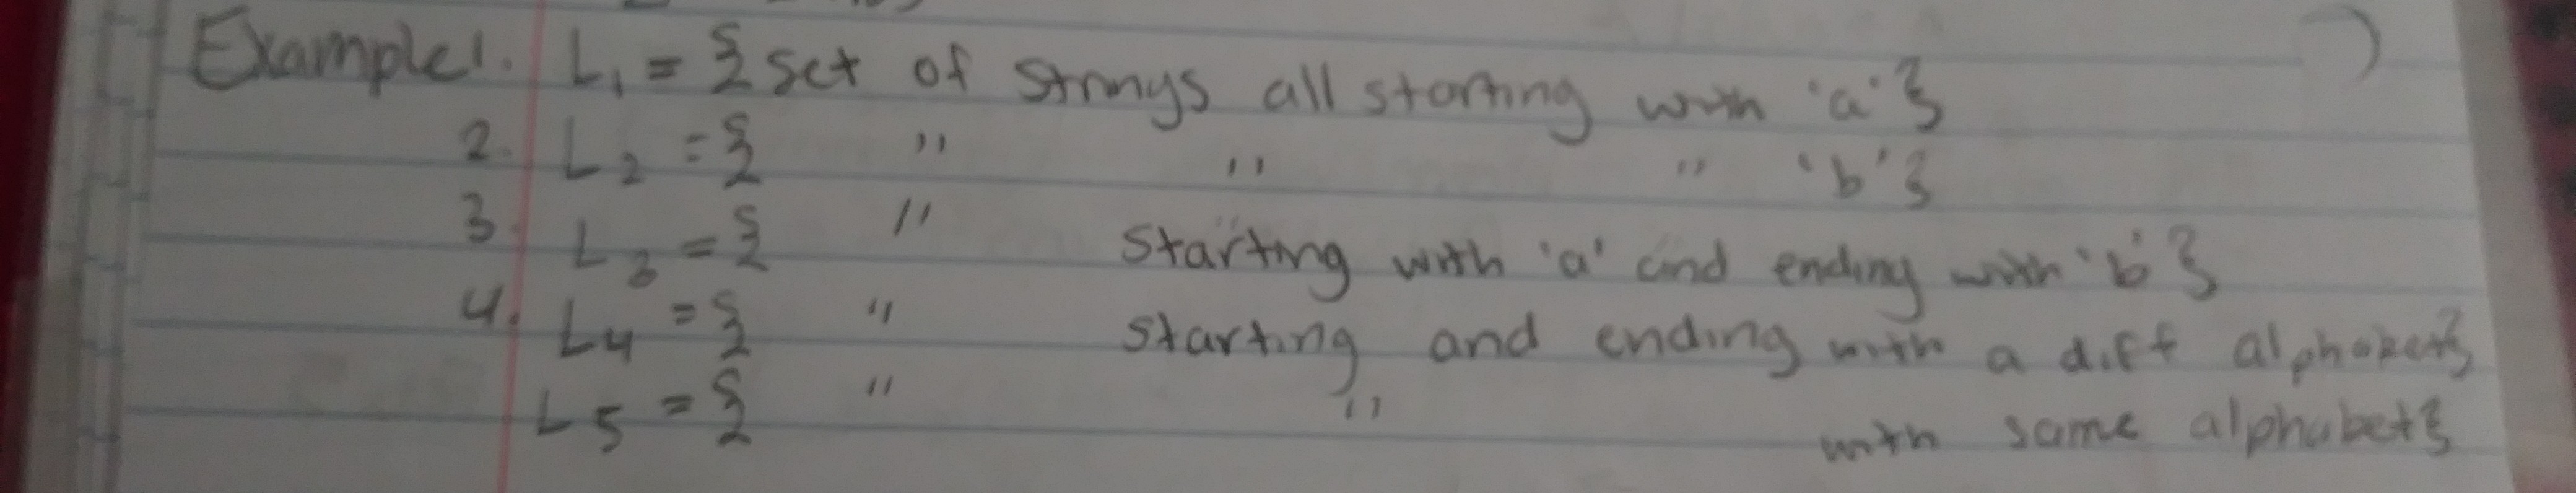 Example 1. L1 = {set of strings all starting with 'a'}
2. L2 = { " " " 'b'}
3. L3 = { " starting with 'a' and ending with 'b'}
4. L4 = { " starting and ending with a diff alphabet}
L5 = { " " with same alphabet}